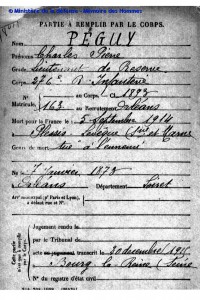 © Ministère de la défense - Mémoire des Hommes
PARTIE À REMPLIR PAR LE CORPS.
PÉGUY
Nom
Prénoms Charles Pierre
Grade Lieutenant de Réserve
Corps 276e R. Infanterie
N° Matricule. au Corps. — Cl. 1893
163 au Recrutement Orléans
Mort pour la France le 5 septembre 1914
à Plessis l'Evêque (Seine et Marne)
Genre de mort "tué à l'ennemi"
Né le 7 Janvier 1873
à Orléans Département Loiret
Arr municipal (p Paris et Lyon),
à défaut rue et N°.
Cette partie n'est pas à remplir par le Corps.
Jugement rendu le
par le Tribunal de
acte ou jugement transcrit le 20 décembre 1915
à Bourg la Reine (Seine)
N° du registre d'état civil